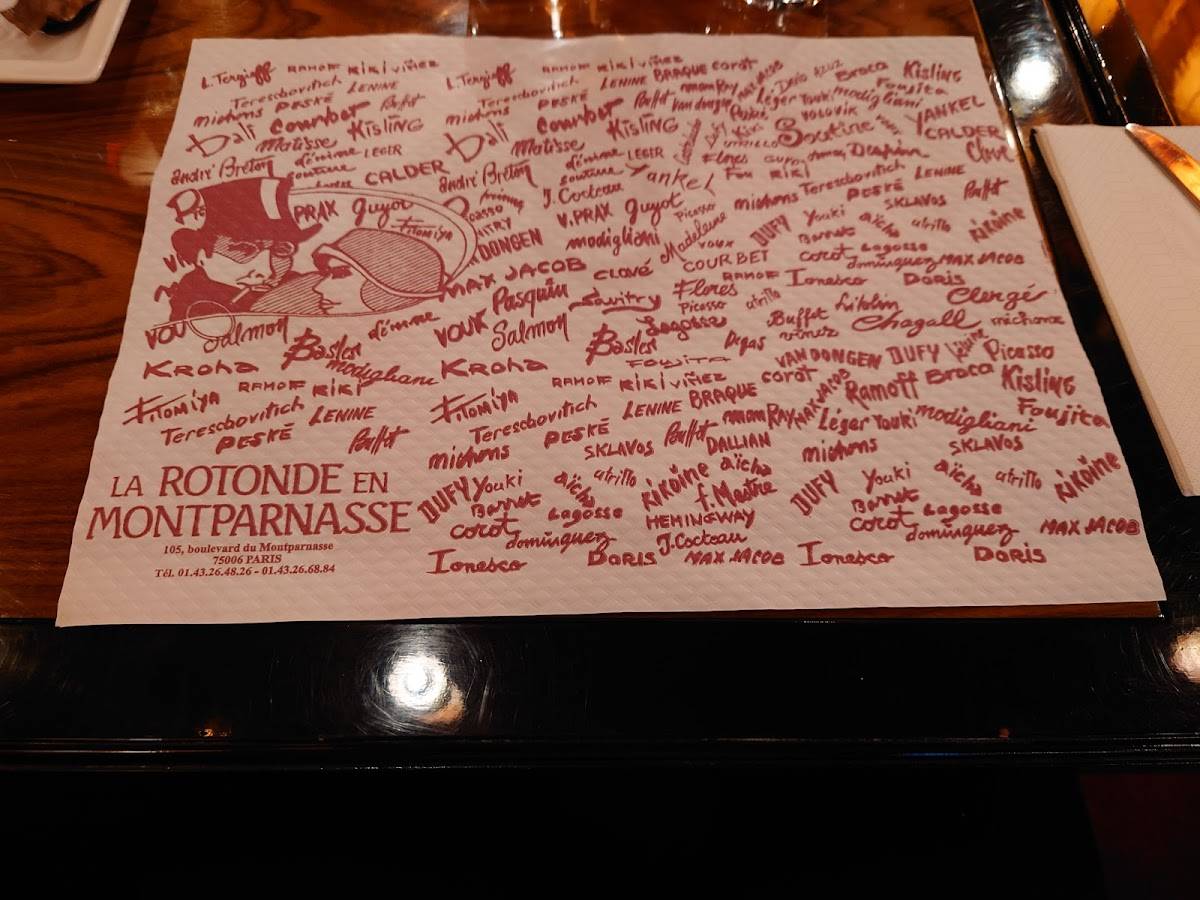 L. Terzieff RAMOFF KIKI VIÑEZ L. Terzieff RAMOFF KIKI VIÑEZ
Tereschovitch LENINE Tereschovitch LENINE BRAQUE corot Braca Kisling
michons PESKÉ Buffet michons PESKÉ Buffet Van dongen Léger Youki modigliani Foujita
Dali Courbet Kisling Dali Courbet Kisling VOLOVIK Soutine YANKEL
Matisse Matisse CALDER
andré Breton LÉGER andré Breton LÉGER Flores Clavé
CALDER J. Cocteau Yankel Fou KIKI michons Tereschovitch LENINE
PRAX Guyot V. PRAX Guyot Picasso PESKÉ Buffet
Fitomiya DONGEN modigliani Madeleine DUFY Youki aïcha utrillo SKLAVOS
MAX JACOB Clavé COURBET Barnet corot Lagosse KIKOÏNE
Pasquin Savitry Flores RAMOFF Ionesco dominguez MAX JACOB DORIS
VOU Salmon VOUX Salmon Picasso utrillo Clergé
Basler Basler Lagosse Degas Buffet Chagall michonze
KROHA modigliani KROHA FOUJITA VAN DONGEN DUFY Picasso
FITOMIYA RAMOFF KIKI FITOMIYA RAMOFF KIKI VIÑEZ corot Ramoff Braca Kisling
Tereschovitch LENINE Tereschovitch LENINE BRAQUE man RAY MAX JACOB Léger Youki modigliani Foujita
PESKÉ Buffet michons PESKÉ SKLAVOS Buffet DALLIAN michons SKLAVOS
LA ROTONDE EN
MONTPARNASSE
105, boulevard du Montparnasse
75006 PARIS
Tél. 01.43.26.48.26 - 01.43.26.68.84
DUFY Youki aïcha utrillo KIKOÏNE aïcha DUFY Youki aïcha utrillo KIKOÏNE
Barnet Lagosse f. Mestre Barnet Lagosse
corot dominguez HEMINGWAY corot dominguez MAX JACOB
J. Cocteau
Ionesco DORIS MAX JACOB Ionesco DORIS